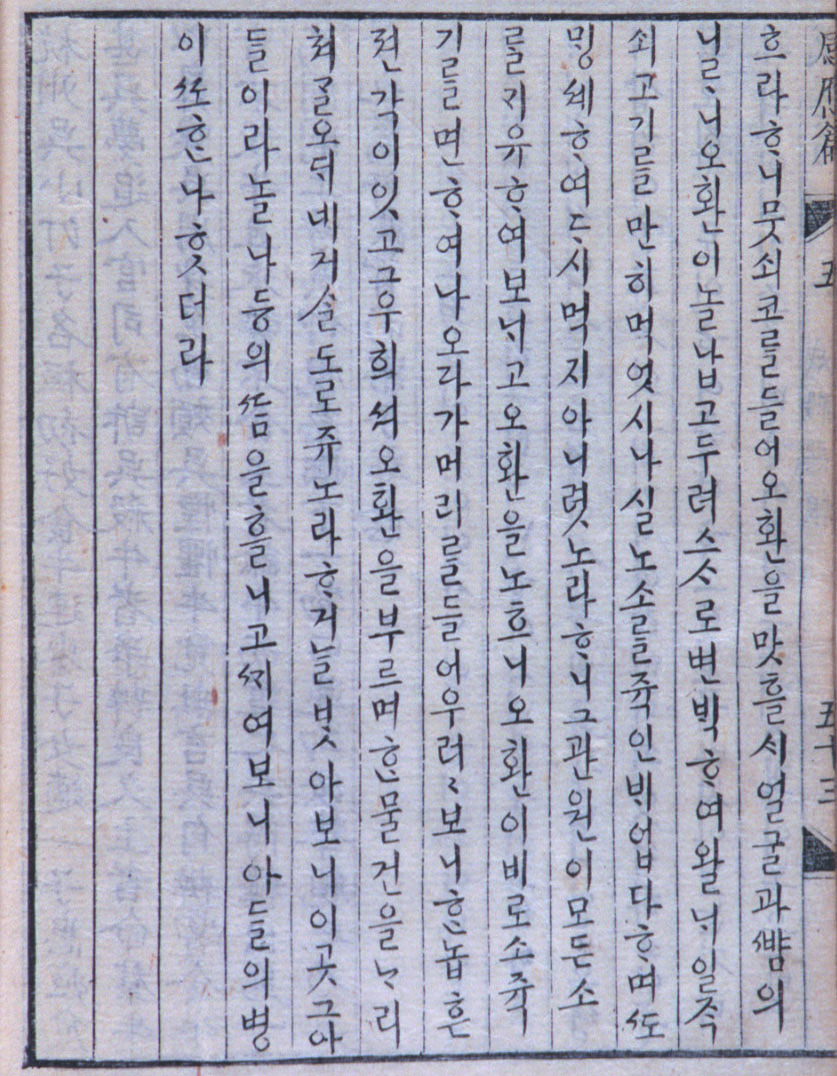 感應篇 五 五十三
흐라ᄒᆞ니뭇쇠코를들어오환을맛흘ᄉᆡ얼굴과ᄲᅣᆷ의
닐ᄂᆞ니오환이놀납고두려스ᄉᆞ로변ᄇᆡᆨᄒᆞ여왈ᄂᆡ일즉
쇠고기를만히먹엇시나실노소를쥭인ᄇᆡ업다ᄒᆞ며ᄯᅩ
ᄆᆡᆼ셰ᄒᆞ여ᄃᆞ시먹지아니렷노라ᄒᆞ니그관원이모든소
를ᄀᆡ유ᄒᆞ여보ᄂᆡ고오환을노흐니오환이비로소쥭
기를면ᄒᆞ여나오다가머리를들어우러〻보니ᄒᆞᆫ놉흔
젼각이잇고그우희셔오환을부르며ᄒᆞᆫ물건을ᄂᆞ리
쳐ᄀᆞᆯ오ᄃᆡ네거슬도로쥬노라ᄒᆞ거늘밧아보니이곳그아
들이라놀나등의ᄯᆞᆷ을흘니고ᄭᆡ여보니아들의병
이ᄯᅩᄒᆞᆫ나ᄒᆞᆺ더라